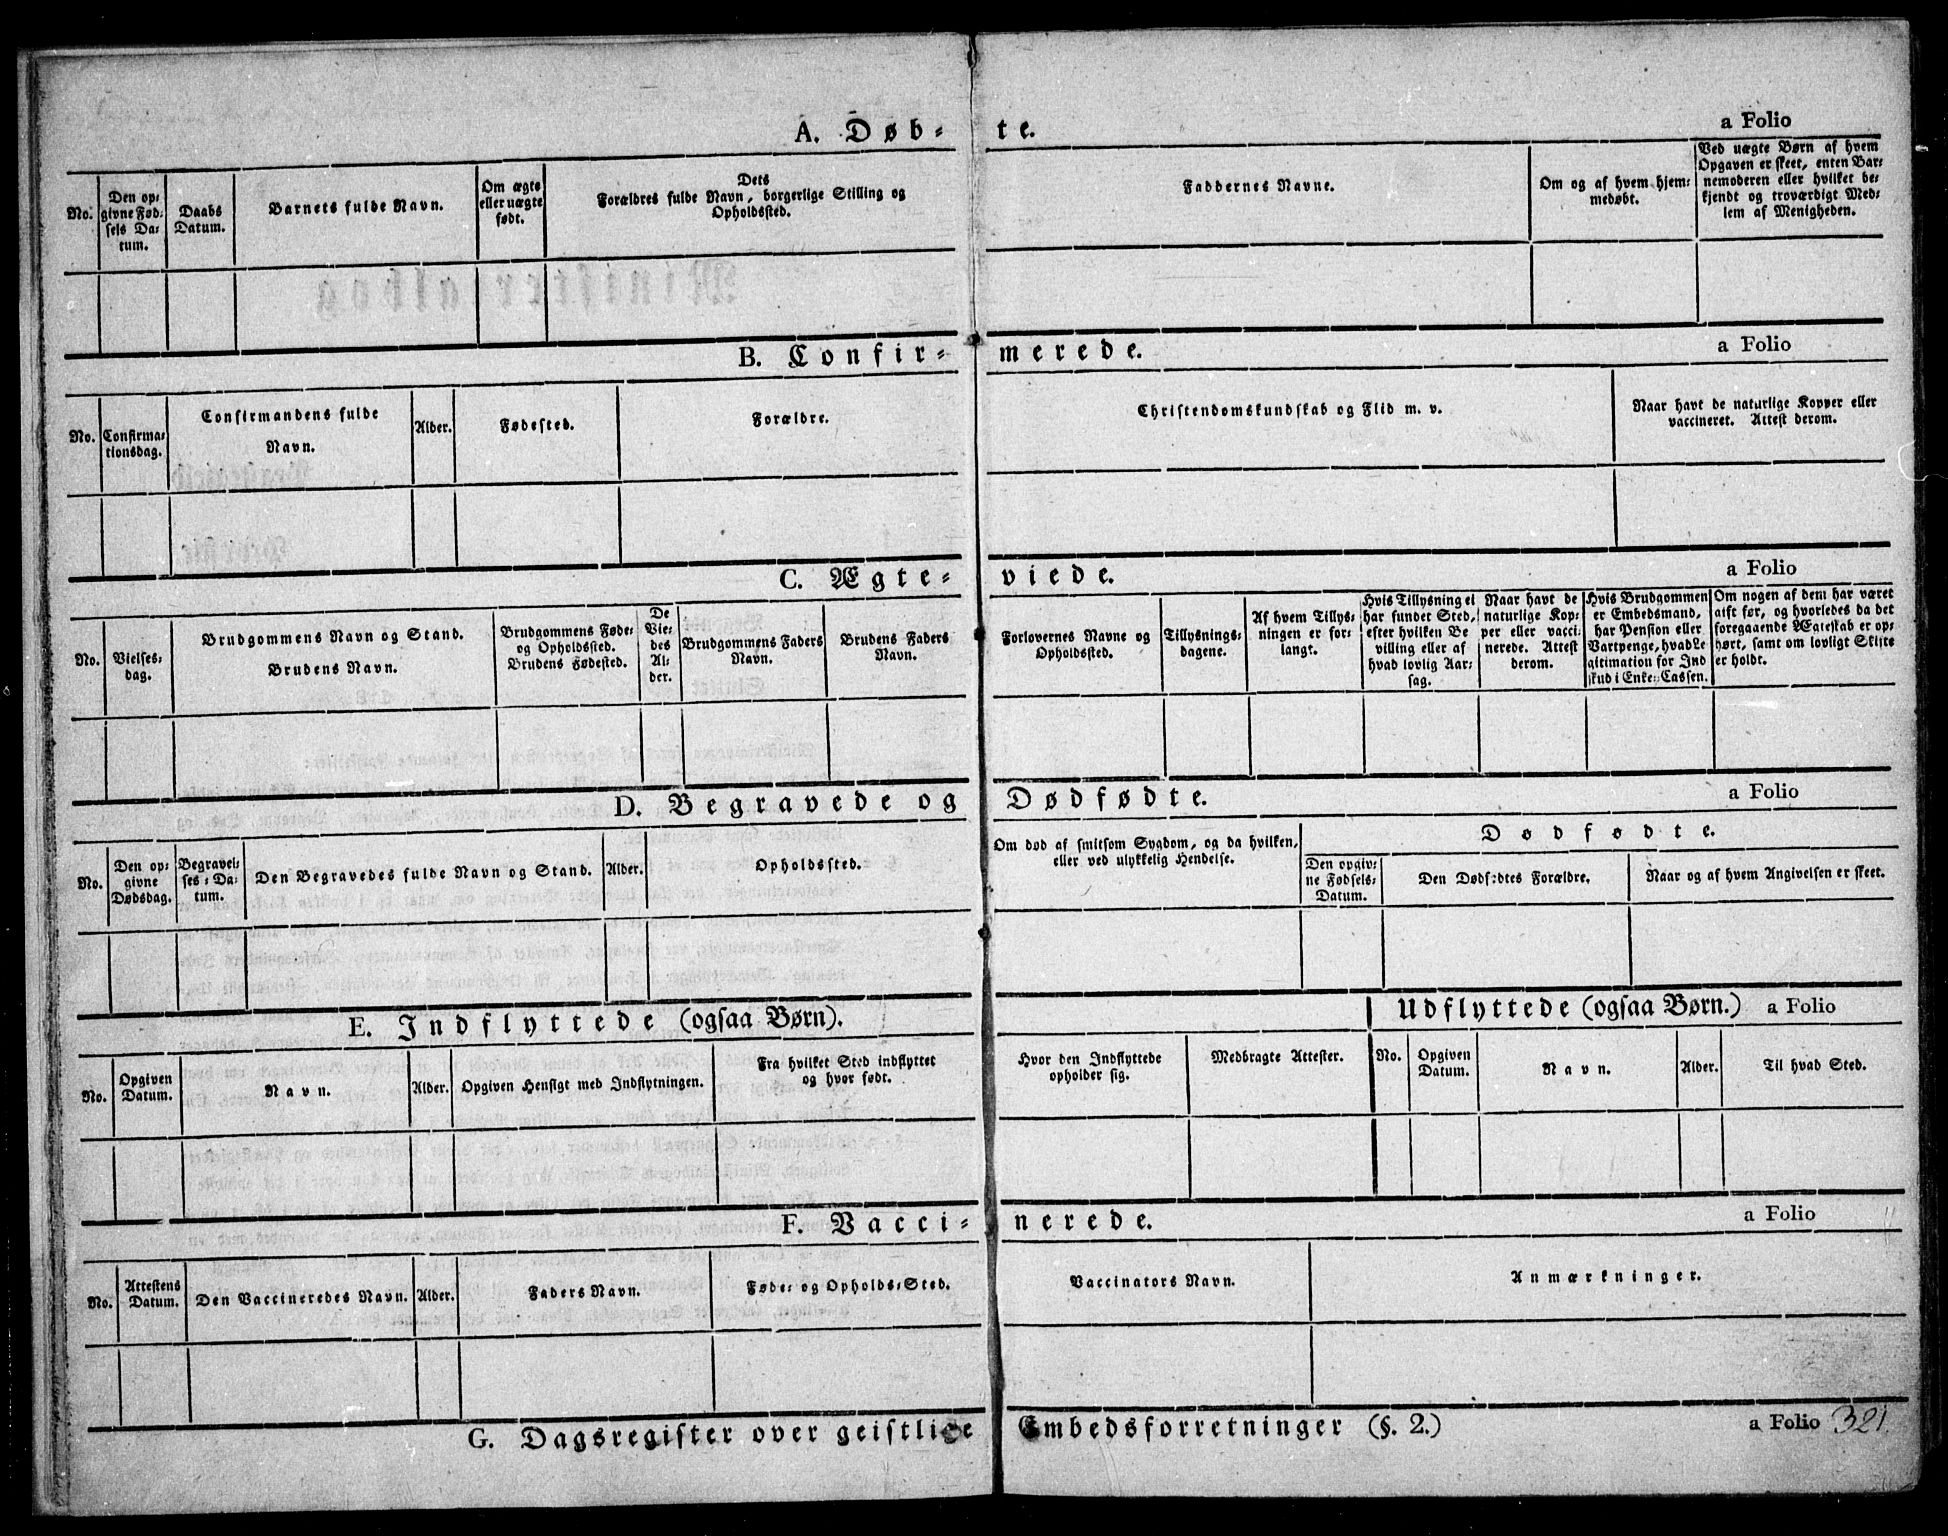 A. Døb- te. a Folio
No.
Den op-
givne Fød-
sels Da-
tum.
Daabs
Datum.
Barnets fulde Navn.
Om ægte
eller uægte
født.
Dets
Forældres fulde Navn, borgerlige Stilling og
Opholdssted.
Faddernes Navne.
Om og af hvem hjem-
medøbt.
Ved uægte Børn af hvem
Opgaven er skeet, enten Bar-
nemoderen eller hvilket be-
kjendt og troværdigt Med-
lem af Menigheden.
Ministerialbog
B. Confir- merede. a Folio
No.
Confirma-
tionsdag.
Confirmandens fulde
Navn.
Alder.
Fødested.
Forældre.
Christendomskundskab og Flid m. v.
Naar havt de naturlige Kopper eller
vaccineret. Attest derom.
C. Ægte- viede. a Folio
No.
Vielses-
dag.
Brudgommens Navn og Stand.
Brudens Navn.
Brudgommens Føde-
og Opholdssted.
Brudens Fødested.
De
Vie-
des
Al-
der.
Brudgommens Faders
Navn.
Brudens Faders
Navn.
Forlovernes Navne og
Opholdssted.
Tillysnings-
dagene.
Af hvem Tillys-
ningen er for-
langt.
Hvis Tillysning ei
har fundet Sted,
efter hvilken Be
villing eller af
hvad lovlig Aar-
sag.
Naar havt de
naturlige Kop-
per eller vacci
nerede. Attest
derom.
Hvis Brudgommen
er Embedsmand,
har Pension eller
Vartpenge, hvad Le
gitimation for Ind
skud i Enke-Cassen.
Om nogen af dem har været
gift før, og hvorledes da det
foregaaende Ægteskab er op-
hørt, samt om lovligt Skifte
er holdt.
D. Begravede og Dødfødte. a Folio
No.
Den op-
givne
Dødsdag.
Begravel-
ses-Da-
tum.
Den Begravedes fulde Navn og Stand.
Alder.
Opholdssted.
Om død af smitsom Sygdom, og da hvilken,
eller ved ulykkelig Hendelse.
Dødfødte.
Den opgiv-
ne Fødsels-
Datum.
Den Dødfødtes Forældre.
Naar og af hvem Angivelsen er skeet.
E. Indflyttede (ogsaa Børn). Udflyttede (ogsaa Børn.) a Folio
No.
Opgiven
Datum.
Navn.
Alder.
Opgiven Hensigt med Indflytningen.
Fra hvilket Sted indflyttet
og hvor født.
Hvor den Indflyttede
opholder sig.
Medbragte Attester.
No.
Opgiven
Datum.
Navn.
Alder.
Til hvad Sted.
F. Vacci- nerede. a Folio
No.
Attestens
Datum.
Den Vaccineredes Navn.
Alder.
Faders Navn.
Føde- og Opholds-Sted.
Vaccinators Navn.
Anmærkninger.
G. Dagsregister over geistlige Embedsforretninger (§. 2.) a Folio 321.